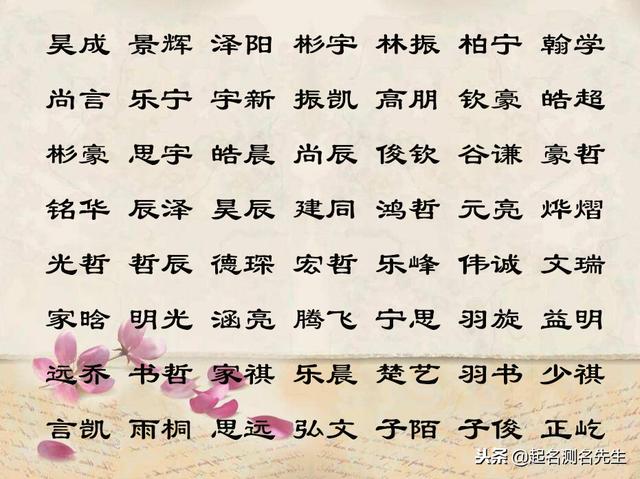 昊成 景辉 泽阳 彬宇 林振 柏宁 翰学
尚言 乐宁 宇新 振凯 高朋 钦豪 皓超
彬豪 思宇 皓晨 尚辰 俊钦 谷谦 豪哲
铭华 辰泽 昊辰 建同 鸿哲 元亮 烨熠
光哲 哲辰 德琛 宏哲 乐峰 伟诚 文瑞
家晗 明光 涵亮 腾飞 宁思 羽旋 益明
远乔 书哲 家祺 乐晨 楚艺 羽书 少祺
言凯 雨桐 思远 弘文 子陌 子俊 正屹
头条 @起名测名先生